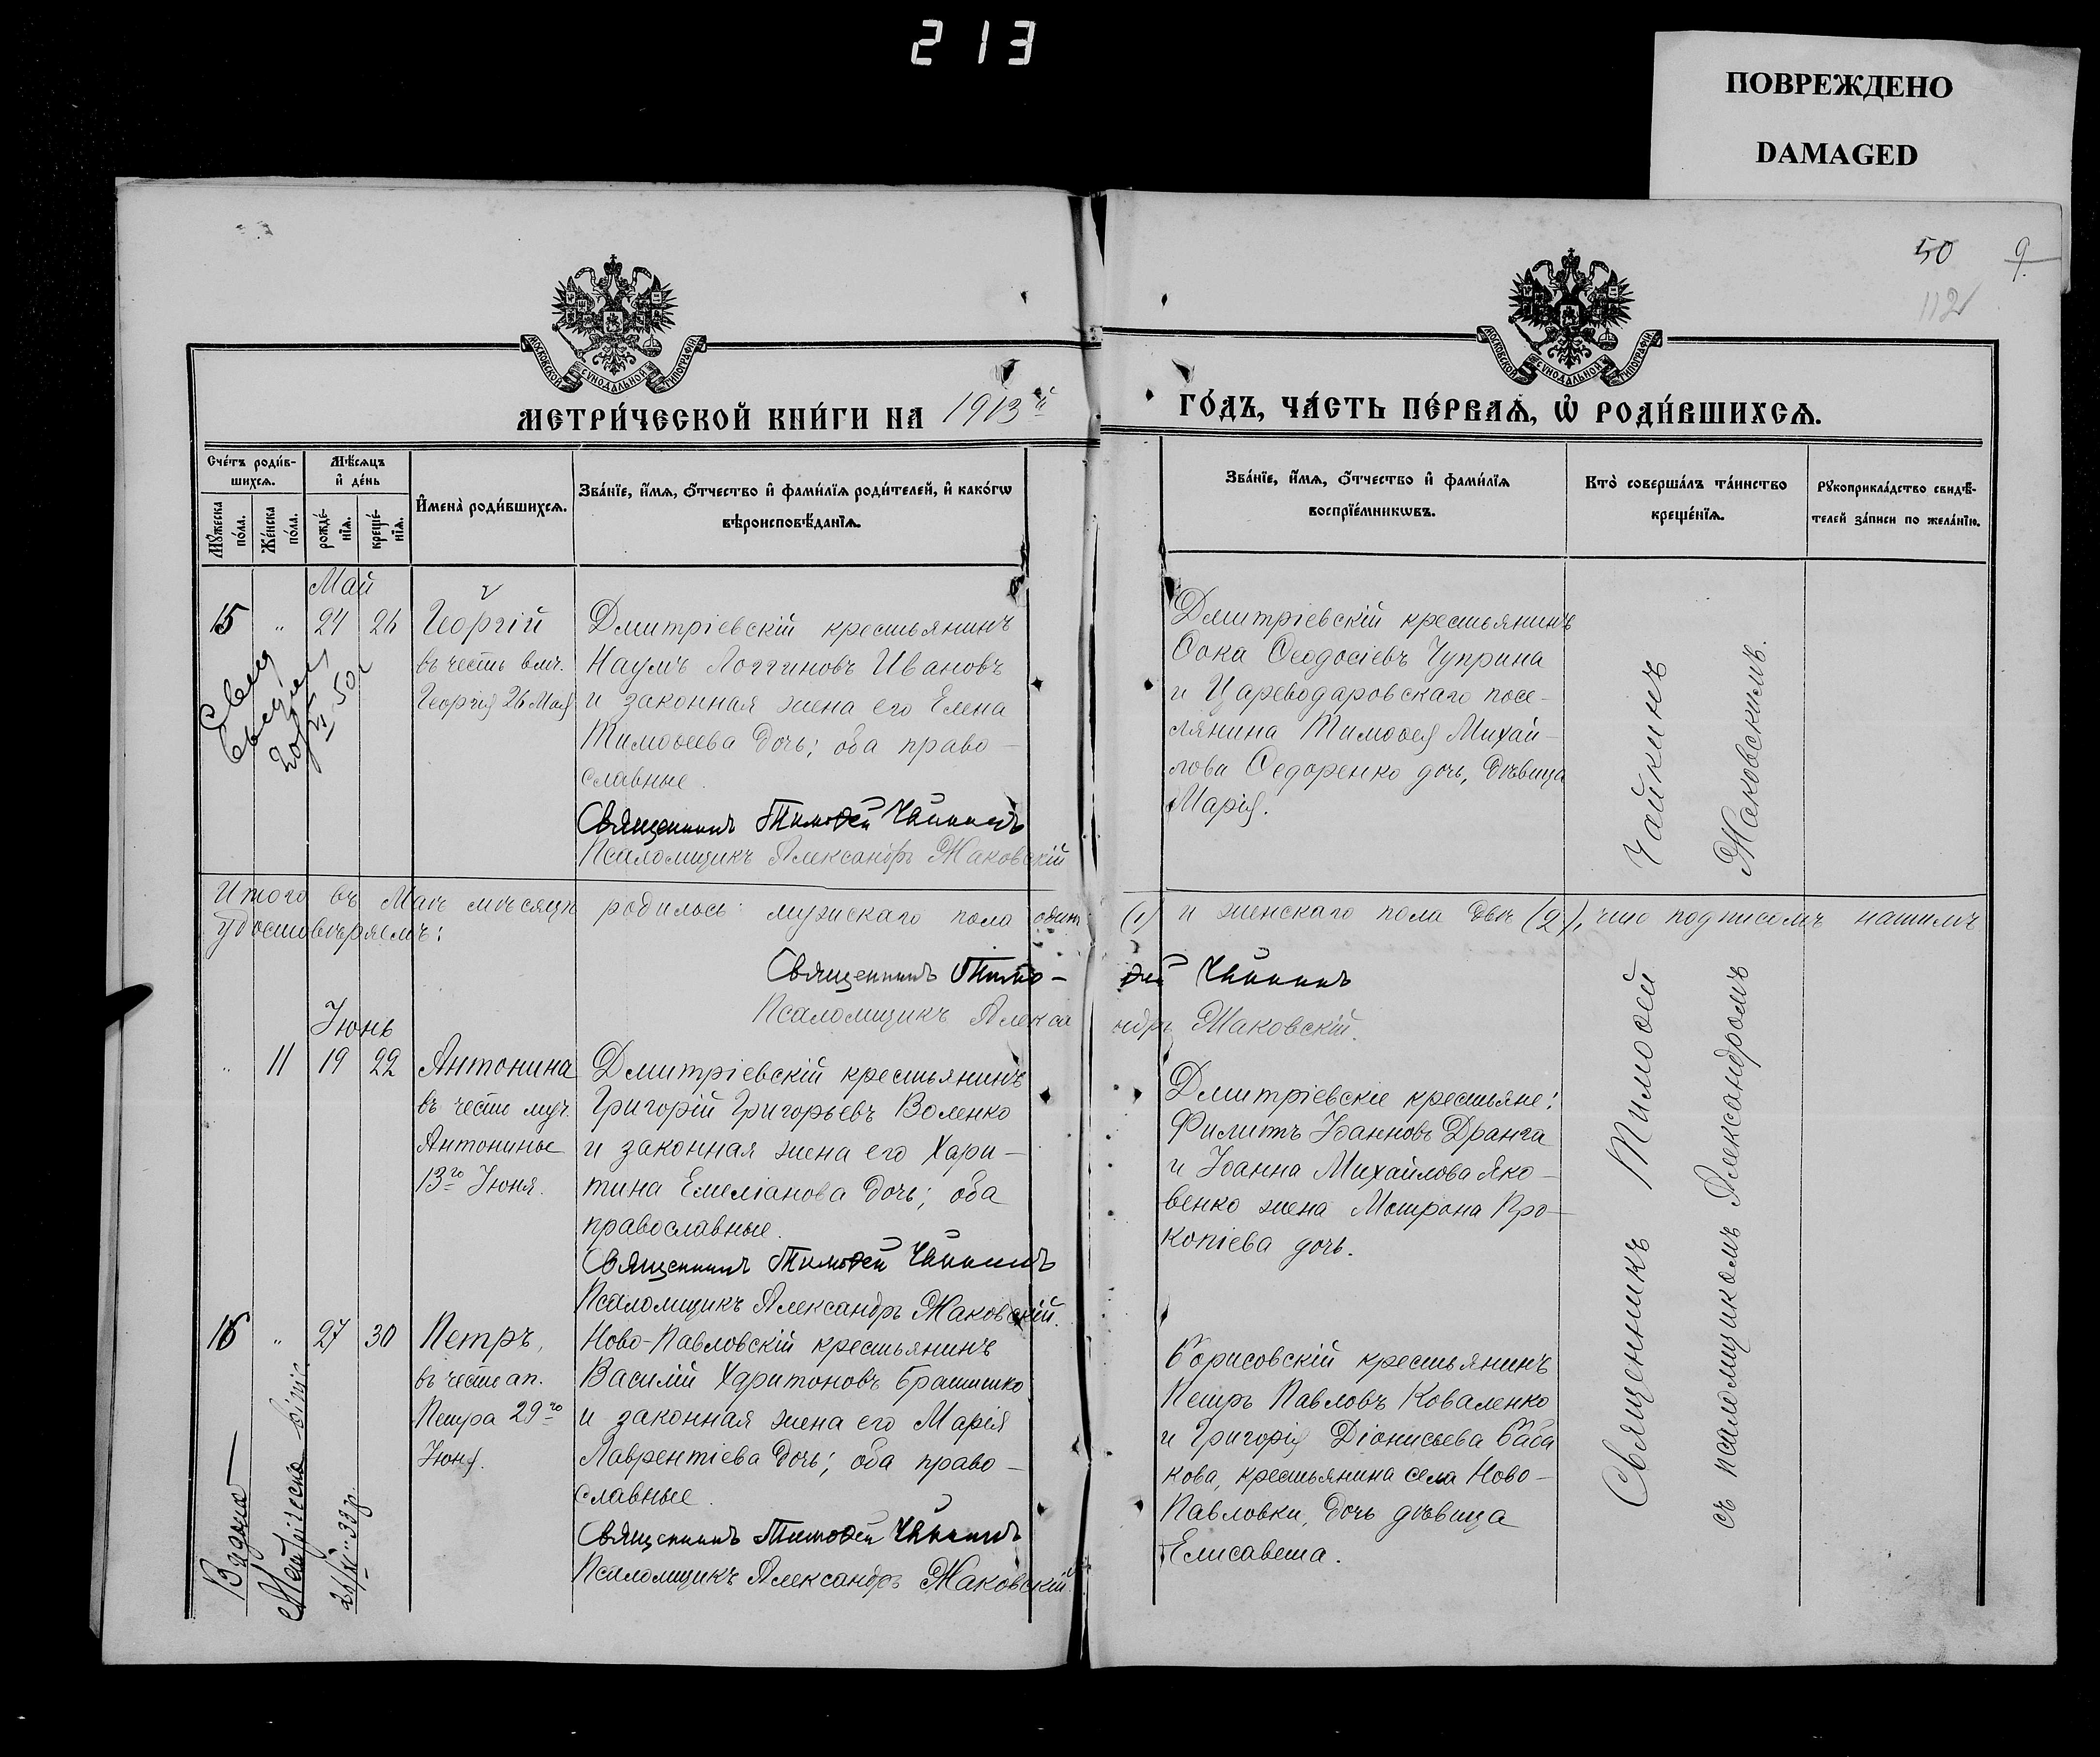 213
ПОВРЕЖДЕНО
DAMAGED
50 9
112
МОСКОВСКОЙ СѴНОДАЛЬНОЙ ТИПОГРАФІИ
МОСКОВСКОЙ СѴНОДАЛЬНОЙ ТИПОГРАФІИ
МЕТРИ́ЧЕСКОЙ КНИ́ГИ НА 1913й
ГО́ДЪ, ЧА́СТЬ ПЕ́РВАѦ, Ѡ҆ РОДИ́ВШИХСѦ.
Сче́тъ роди́в-
шихсѧ.
Мꙋ́жеска по́ла.
Же́нска по́ла.
Мѣ́сѧцъ
и҆ де́нь
рожде́-
нїѧ.
креще́-
нїѧ.
И҆мена̀ роди́вшихсѧ.
Зва́нїе, и҆́мѧ, ѻ҆́тчество и҆ фами́лїѧ роди́телей, и҆ како́гѡ
вѣроисповѣ́данїѧ.
Зва́нїе, и҆́мѧ, ѻ҆́тчество и҆ фами́лїѧ
воспрїе́мникѡвъ.
Кто̀ соверша́лъ та́инство
креще́нїѧ.
Рꙋкоприкла́дство свидѣ́-
телей за́писи по жела́нїю.
Май
15 " 24 26
Георгій
въ честь вмч.
Георгія 26 Мая
Дмитріевскій крестьянинъ
Наумъ Логгиновъ Ивановъ
и законная жена его Елена
Тимоѳеева дочь; оба право-
славные.
Священникъ Тимоѳей Чайкинъ
Псаломщикъ Александръ Жаковскій
Дмитріевскій крестьянинъ
Ѳока Ѳеодосіевъ Чуприна
и Цареводаровскаго посе-
лянина Тимоѳея Михай-
лова Ѳедоренко дочь, дѣвица
Марія.
Итого въ Маѣ мѣсяцѣ родилось: мужскаго пола одинъ (1) и женскаго пола двѣ (2), что подписомъ нашимъ
удостовѣряемъ:
Священникъ Тимо-ѳей Чайкинъ
Псаломщикъ Александръ Жаковскій.
Іюнь
" 11 19 22
Антонина
въ честь муч.
Антонины
13го Іюня.
Дмитріевскій крестьянинъ
Григорій Григорьевъ Воленко
и законная жена его Хари-
тина Емеліанова дочь; оба
православные.
Священникъ Тимоѳей Чайкинъ
Псаломщикъ Александръ Жаковскій.
Дмитріевскіе крестьяне:
Филиппъ Іоанновъ Дранга
и Іоанна Михайлова Яко-
венко жена Матрона Про-
копіева дочь.
16 " 27 30
Петръ,
въ честь ап.
Петра 29го
Іюня.
Ново-Павловскій крестьянинъ
Василій Харитоновъ Брашишко
и законная жена его Марія
Лаврентіева дочь; оба право-
славные.
Священникъ Тимоѳей Чайкинъ
Псаломщикъ Александръ Жаковскій
Борисовскій крестьянинъ
Петръ Павловъ Коваленко
и Григорія Діонисьева Баба
кова, крестьянина села Ново-
Павловки, дочь дѣвица
Елисавета.
Священникъ Тимоѳей Чайкинъ
съ псаломщикомъ Александромъ Жаковскимъ.
50г
Видано
Метрическа